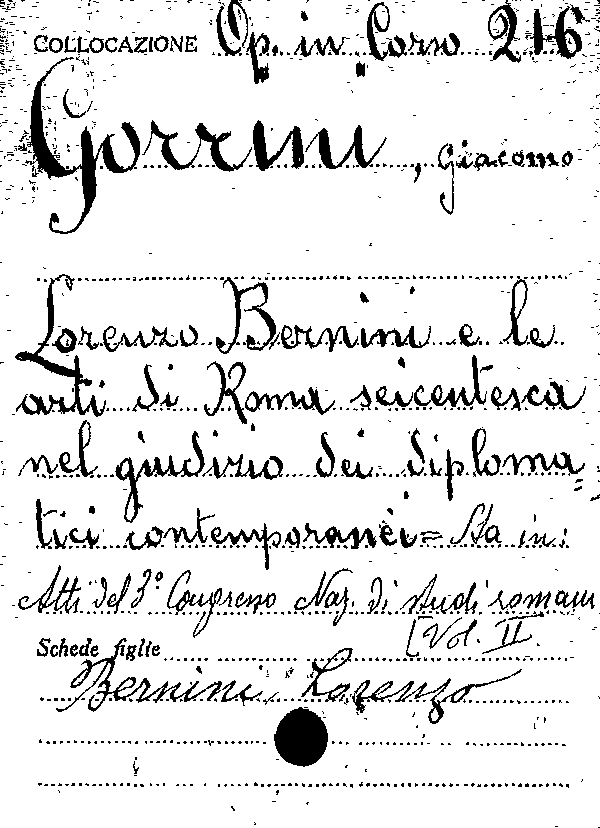 COLLOCAZIONE Op. in Corso 216
Gorrini, Giacomo
Lorenzo Bernini e le
arti di Roma seicentesca
nel giudizio dei diploma=
tici contemporanei= Sta in:
Atti del 3° Congresso Naz. di studi romani
[Vol. II.
Schede figlie
Bernini, Lorenzo